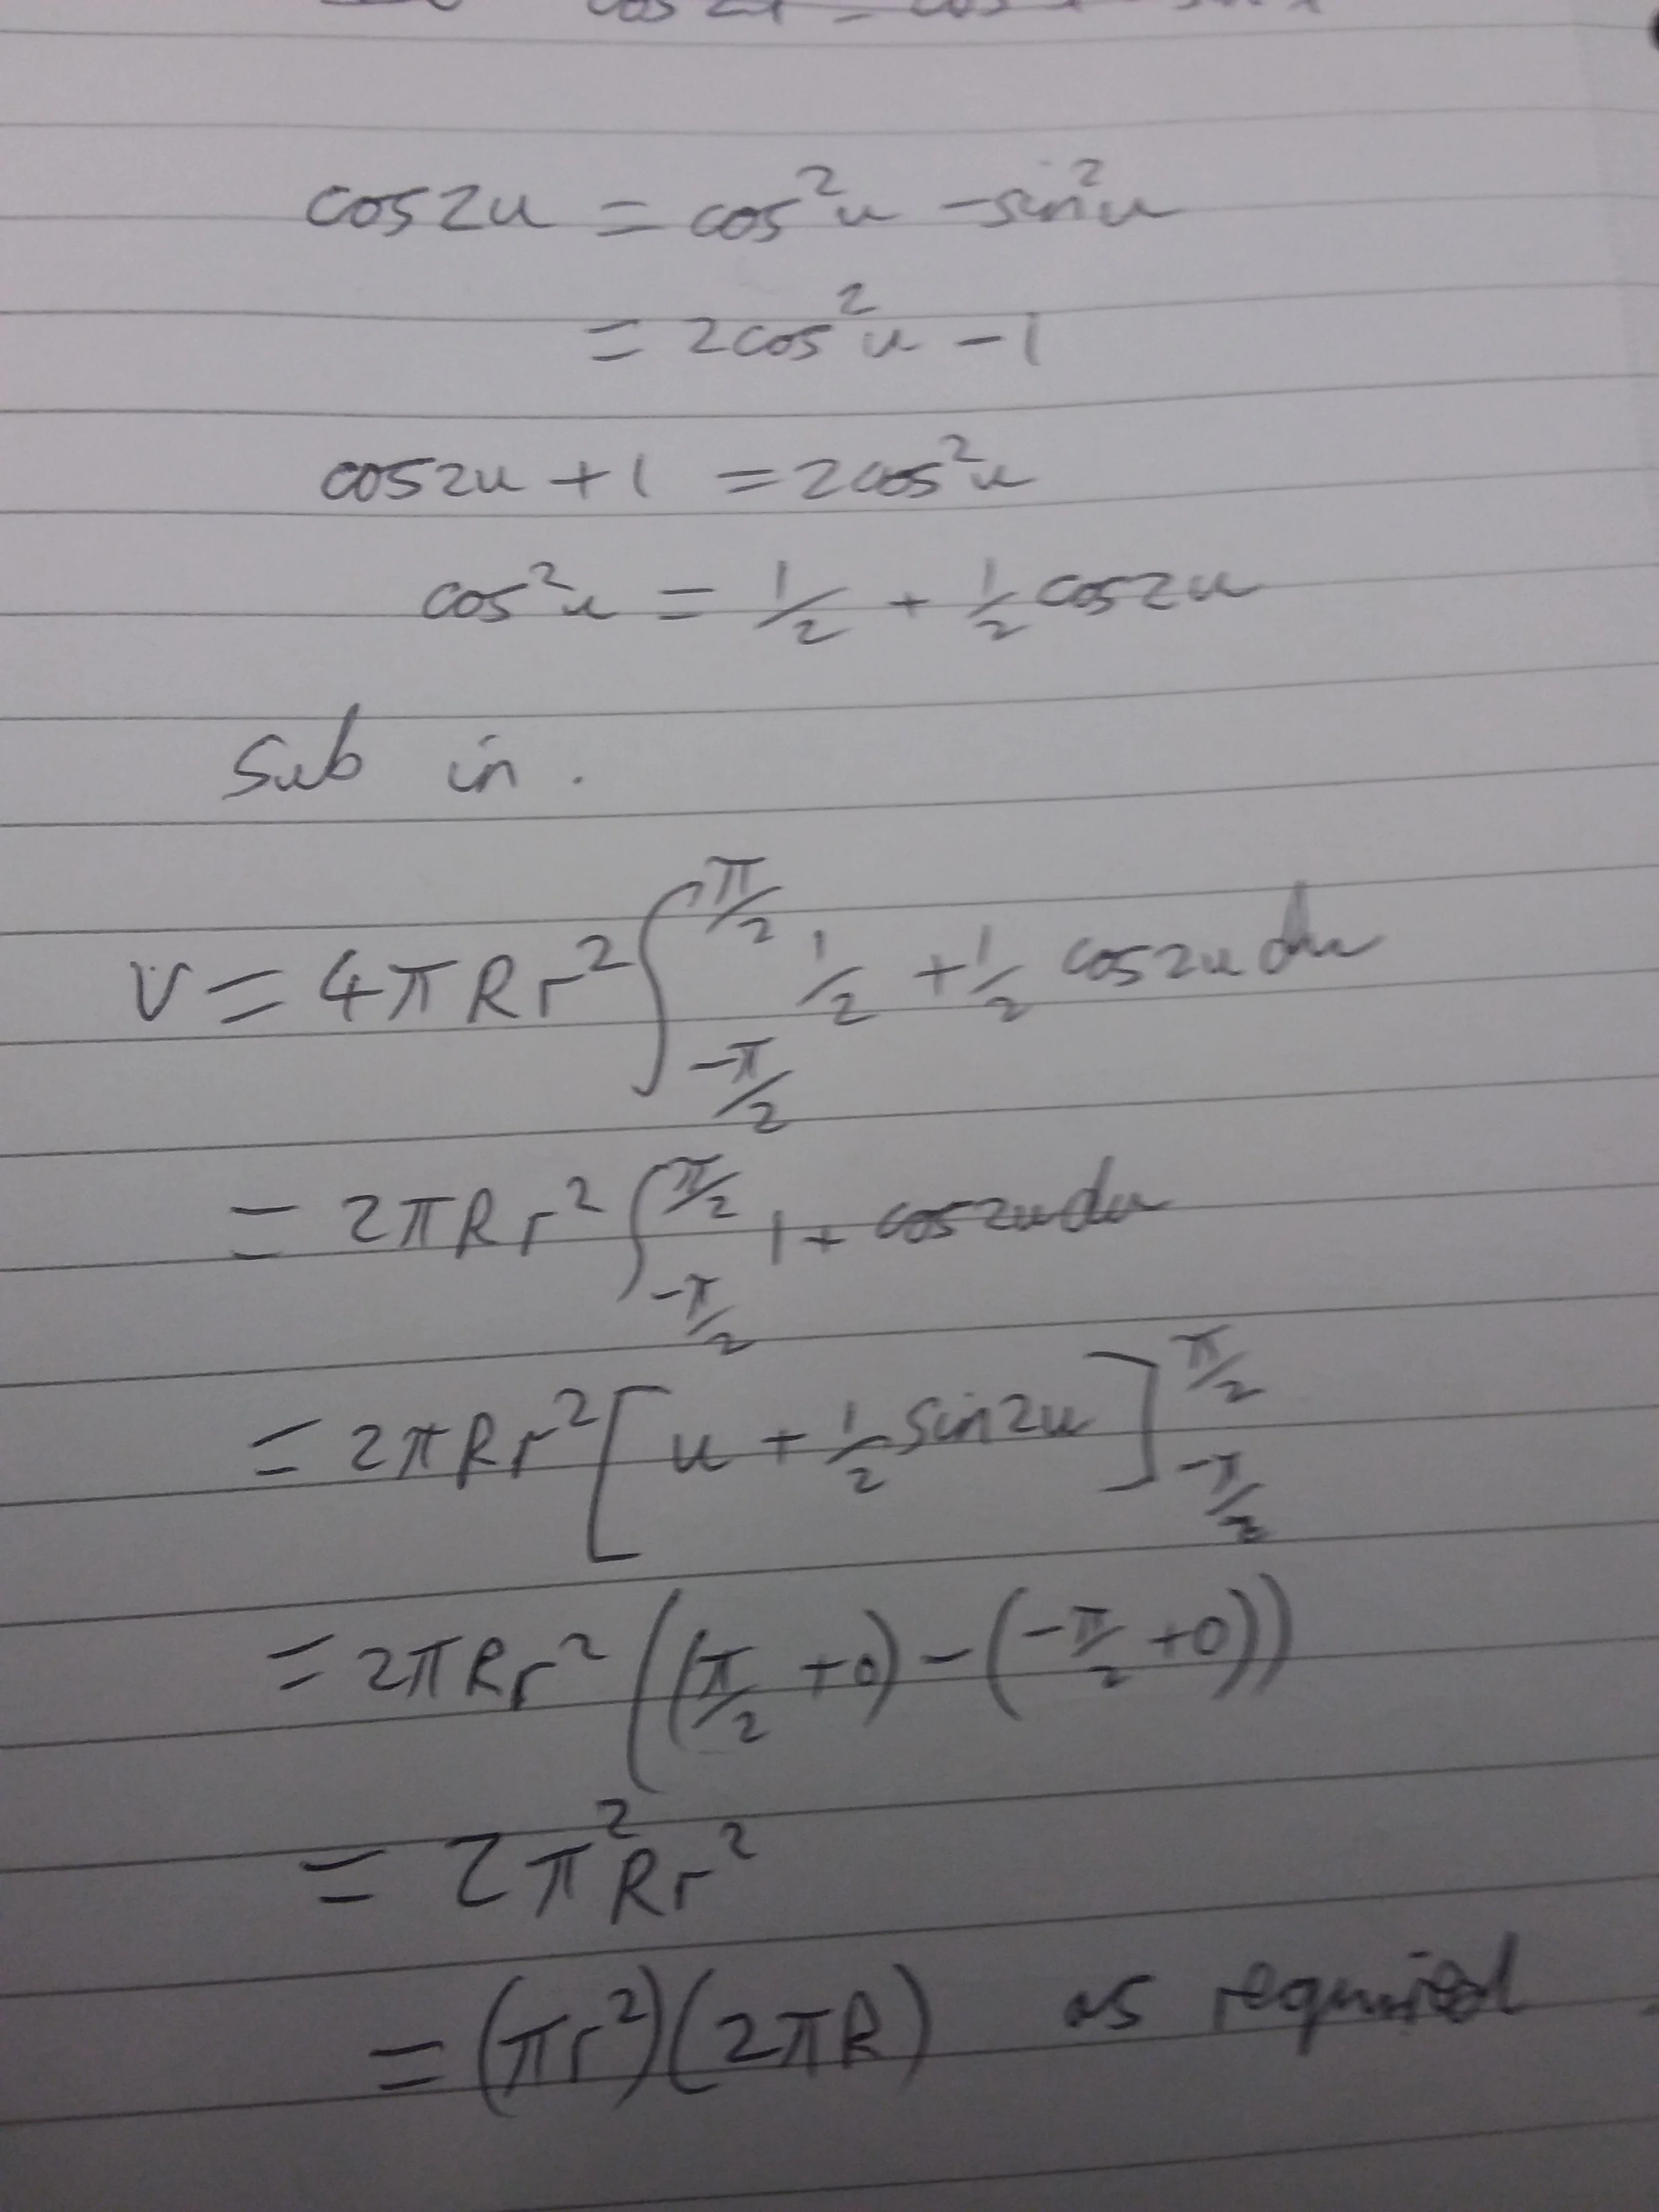 cos2u = cos²u - sin²u
= 2cos²u - 1
cos2u + 1 = 2cos²u
cos²u = 1/2 + 1/2 cos2u
Sub in.
V = 4πRr² ∫_{-π/2}^{π/2} 1/2 + 1/2 cos2u du
= 2πRr² ∫_{-π/2}^{π/2} 1 + cos2u du
= 2πRr² [u + 1/2 sin2u]_{-π/2}^{π/2}
= 2πRr² ((π/2 + 0) - (-π/2 + 0))
= 2π²Rr²
= (πr²)(2πR) as required